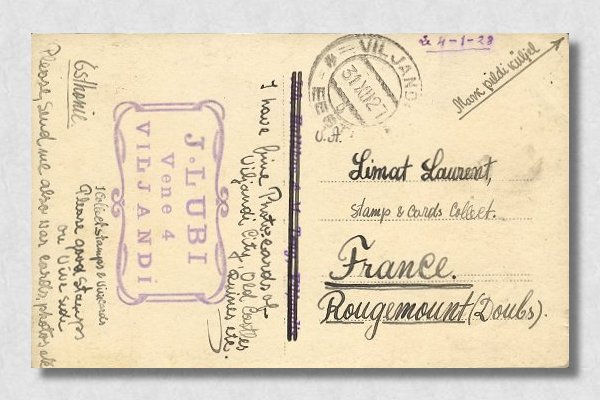 Esthonie.
I have fine Photo-cards of
Viljandi City, Old Castles
Ruines etc.
J. LUBI
Vene 4
VILJANDI
I Collect Stamps & Viewcards
Please good stamps
on Vue side
Please, send me also War cards, photos etc
VILJANDI
31 XII 27
EESTI
4-1-28
Mark pildi küljel
Limat Laurent,
Stamps & Cards Collect.
France.
Rougemount (Doubs).